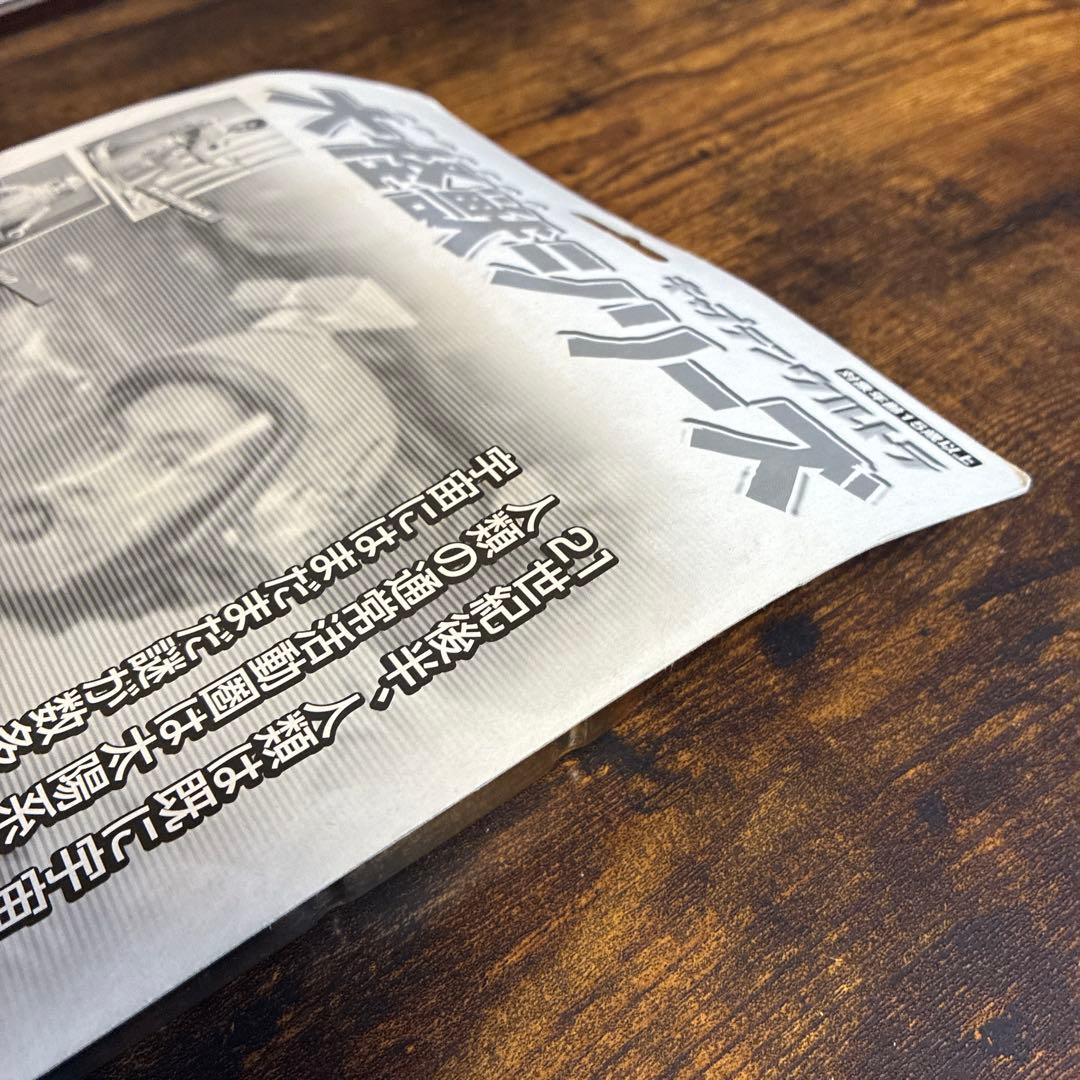 対象年齢15歳以上
キャプテンウルトラ
大怪獣シリーズ
21世紀後半、人類は既に宇宙
人類の通常活動圏は太陽系
宇宙にはまだまだ謎が数多